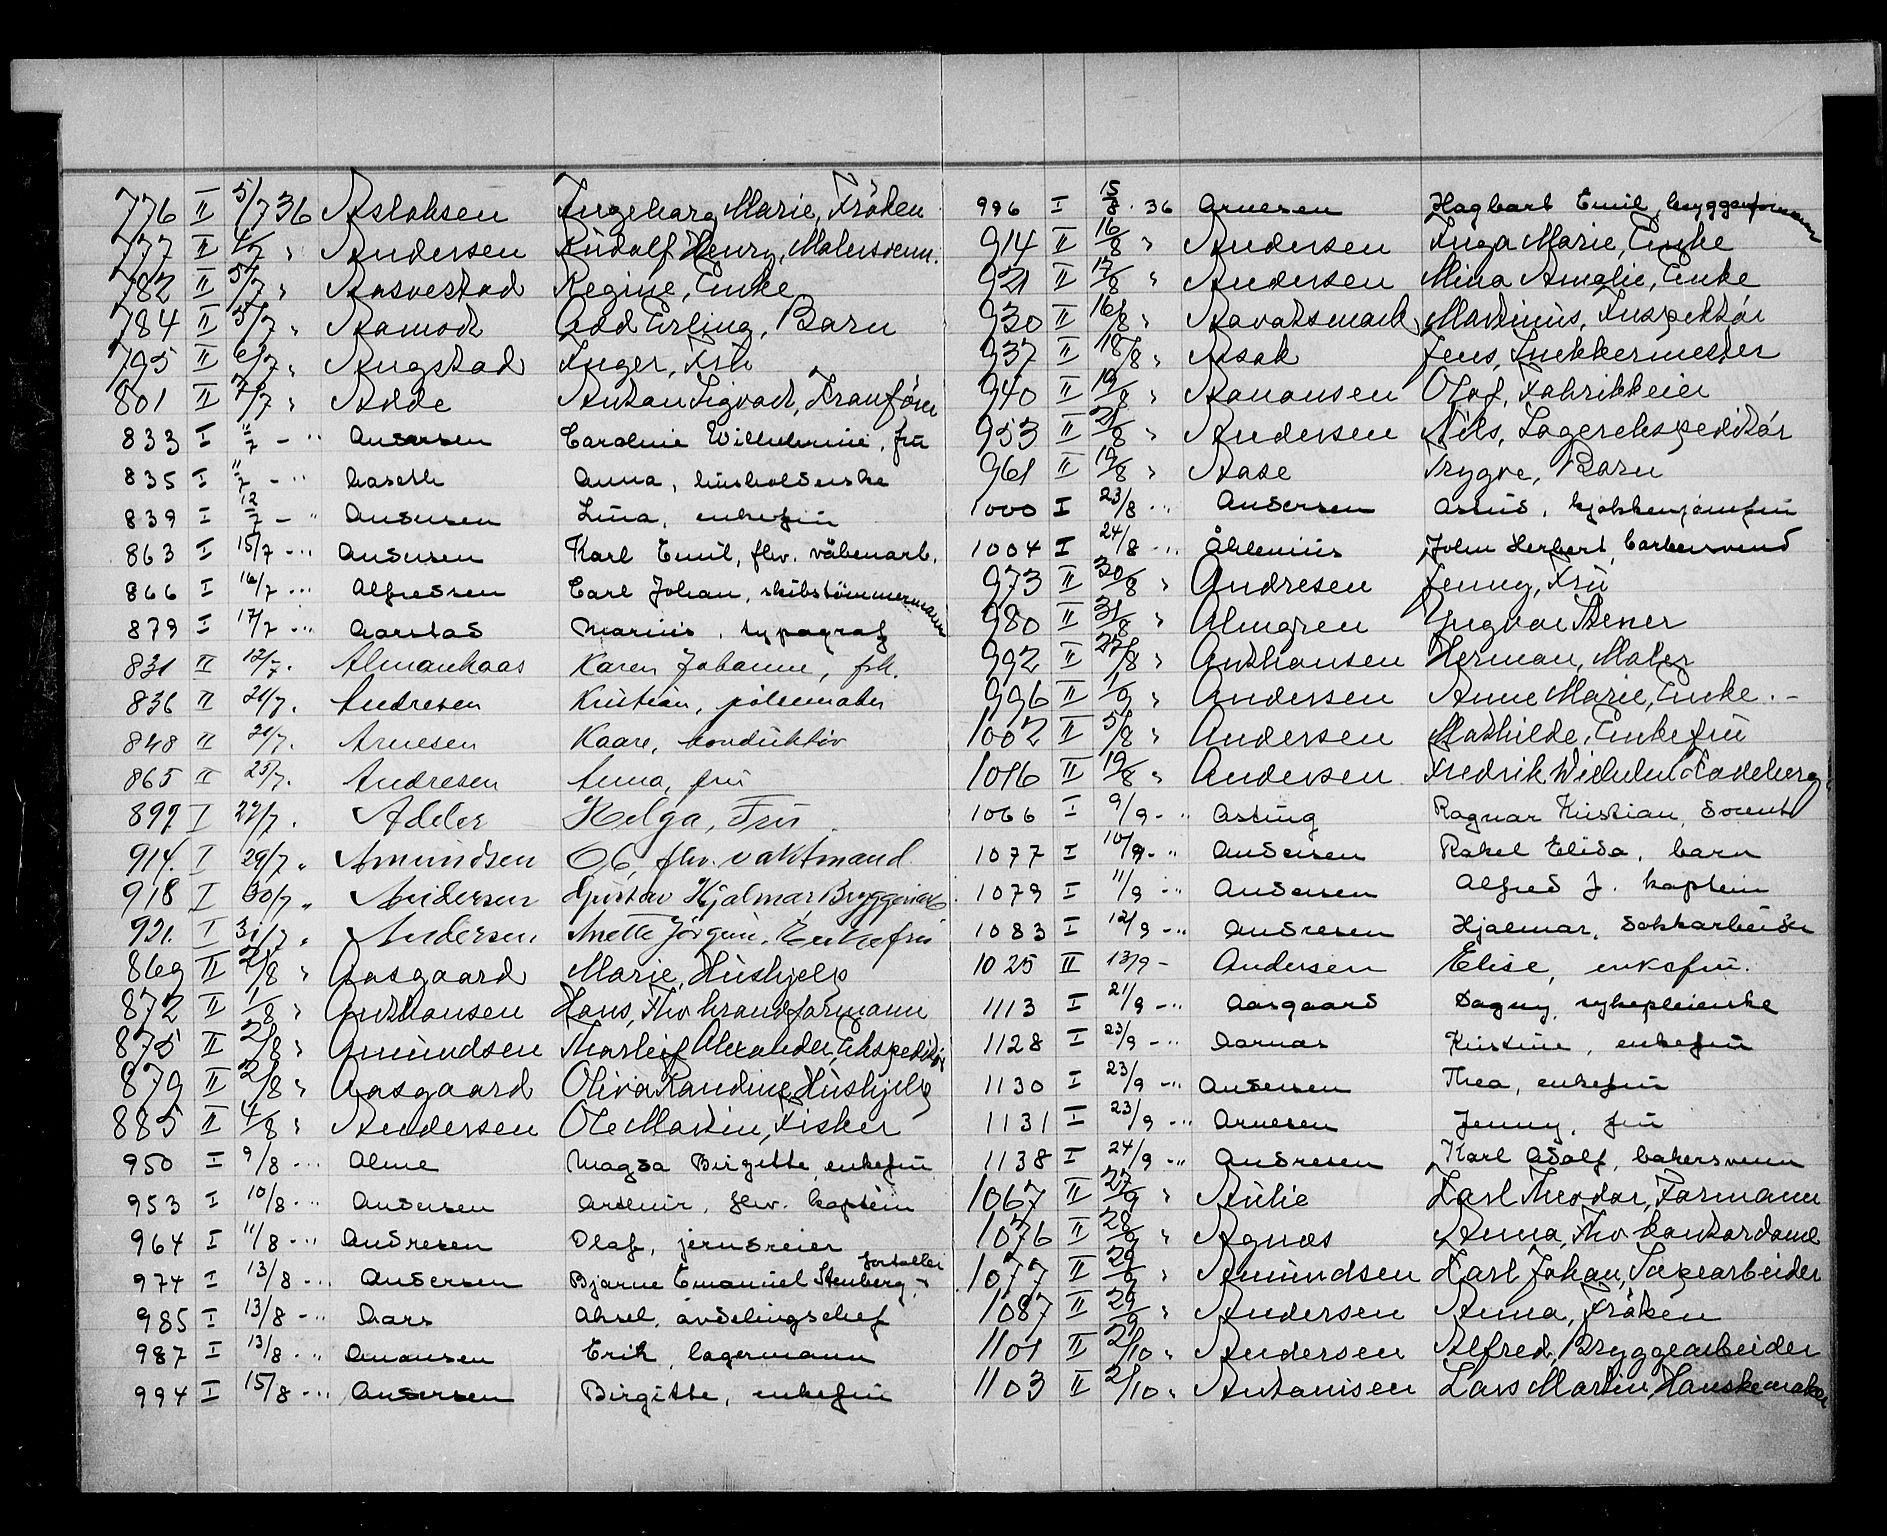 776 II 5/7 36 Aslaksen Ingeborg Marie, Fröken
777 II 4/7 " Andersen Rudolf Henry, Malersvenn.
782 II 5/7 " Aasvestad Regine, Enke
784 II 3/7 " Aamodt Odd Erling, Barn
795 II 6/7 " Angstad Inger, Fru
801 II 7/7 " Anton Sigvart,
833 I 11/7 - " Andersen Caroline Wilhelmine, fru
835 I 11/7 - " Aaseth Anna, husholderske
839 I 12/7 - " Andersen Lina, enkefru
863 I 15/7 - " Andersen Karl Emil, fhv. våbenarb.
866 I 16/7 - " Alfredsen Carl Johan, skibstömmermann
879 I 17/7 - " Aarstad Marius, typograf
831 II 12/7. Almankaas Karen Johanne, frk.
836 II 21/7. Andresen Kristian, pölsemaker
848 II 21/7. Arnesen Kaare, konduktör
865 II 25/7. Andresen Anna, fru
899 I 27/7. Adeler Helga, Fru.
914. I 29/7. " Amundsen O6, fhv. vaktmand
918 I 30/7. " Andersen Gustav Hjalmar
921. I 31/7. " Andersen Anette Jörgine, Enkefru
869 II 2/8 " Aasgaard Marie, Hushjelp
872 II 1/8 " Anthonsen Hans, Fhv brandformann
875 II 2/8 " Amundsen Thorleif Alexander, Ekspeditör
879 II 2/8 " Aasgaard Oliva Randine, Hushjelp
885 II 4/8 " Andersen Ole Martin, Fisker
950 I 9/8 - " Alme Magda Birgitte, enkefru
953 I 10/8 - " Andersen Arthur, fhv. kaptein
964 I 11/8 - " Andresen Olaf, jerndreier
974 I 13/8 - " Andersen Bjarne Emanuel Stenberg,
985 I 13/8 - " Aars Aksel, avdelingschef
987 I 13/8 - " Amansen Erik, lagermann
994 I 15/8 - " Andersen Birgitte, enkefru
996 I 15/8 - 36 Arnesen Hagbart Emil, bryggeformann
914 II 16/8 " Andersen Inga Marie, Enke
921 II 17/8 " Andersen Mina Amalie, Enke
930 II 16/8 " Aavatsmark Martinius, Inspektör
937 II 18/8 " Asak Jens, Snekkermester
940 II 19/8 " Aanonsen Olaf, Fabrikkeier
953 II 21/8 " Andersen Nils, Lagerekspeditör
961 II 19/8 " Aase Trygve, Barn
1000 I 23/8 - " Andersen Astrid, kjökkenjomfru
1004 I 24/8 - " Åhlenius John Herbert, barbersvend
973 II 30/8 " Andresen Jenny, Fru
980 II 31/8 " Almgren Yngvar Stener
992 II 27/8 " Anthonsen Herman, Maler
996 II 1/9 " Andersen Anne Marie, Enke. -
1002 II 5/8 " Andersen Mathilde, Enkefru
1016 II 19/8 " Andersen Fredrik Wilhelm
1066 I 9/9 - " Asting Ragnar Kristian,
1077 I 10/9 - " Andersen Rakel Elida, barn
1079 I 11/9 - " Andersen Alfred J. kaptein
1083 I 12/9 - " Andresen Hjalmar, dokkarbeider
1025 II 13/9 - Andersen Elise, enkefru.
1113 I 21/9 - " Aasgaard Dagny, sykepleierske
1128 I 23/9 - " Aarnas Kristine, enkefru
1130 I 23/9 - " Andersen Thea, enkefru
1131 I 23/9 - " Arnesen Jenny, fru
1138 I 24/9 - " Andresen Karl Adolf, bakersvenn
1067 II 27/9 " Aulie Karl Theodor, Formann
1076 II 28/9 " Agnæs Anna, Fhv kontordame
1077 II 29/9 " Amundsen Karl Johan, Sagearbeider
1087 II 29/9 " Andersen Anna, Fröken
1101 II 2/10 " Andersen Alfred, Bryggearbeider
1103 II 2/10 " Antonisen Lars Martin, Hanskemaker